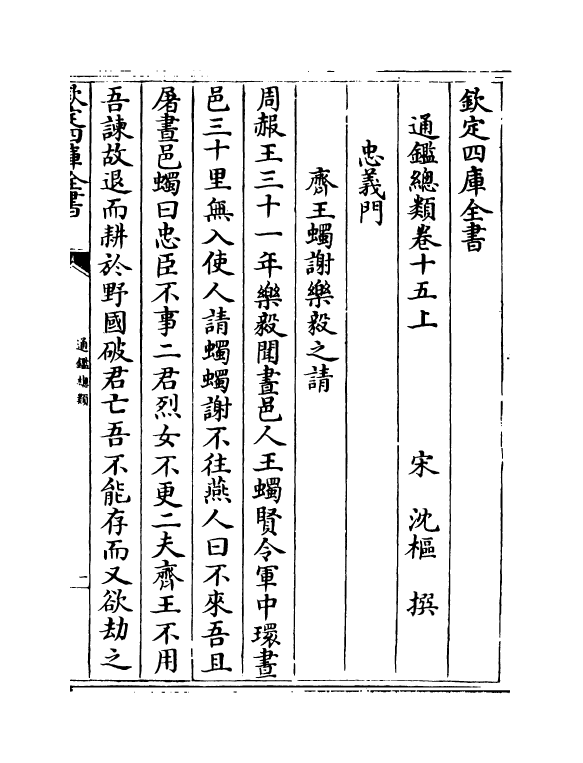 欽定四庫全書
通鑑總類卷十五上　宋　沈樞　撰
忠義門
齊王蠋謝樂毅之請
周赧王三十一年樂毅聞晝邑人王蠋賢令軍中環晝
邑三十里無入使人請蠋蠋謝不往燕人曰不來吾且
屠晝邑蠋曰忠臣不事二君烈女不更二夫齊王不用
吾諫故退而耕於野國破君亡吾不能存而又欲劫之
欽定四庫全書
通鑑總類